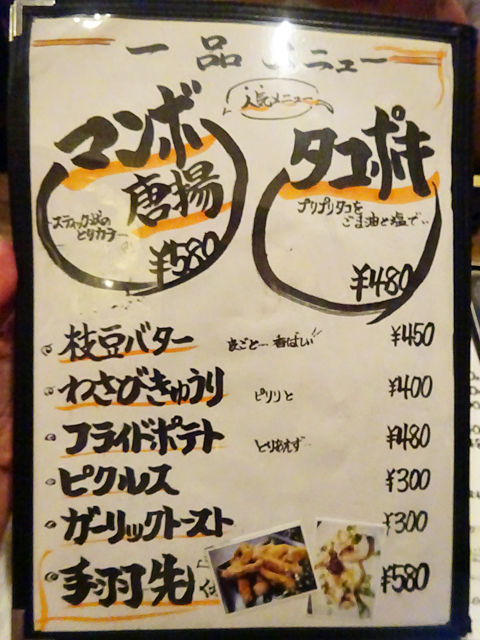 一品メニュー
人気メニュー
マンボ
唐揚
スティック状の
とりカラ
¥580
タコポキ
プリプリタコを
ごま油と塩で‥
¥480
枝豆バター 皮ごと… 香ばしい!! ¥450
わさびきゅうり ピリリと ¥400
フライドポテト とりあえず… ¥480
ピクルス ¥300
ガーリックトースト ¥300
手羽先 ¥580